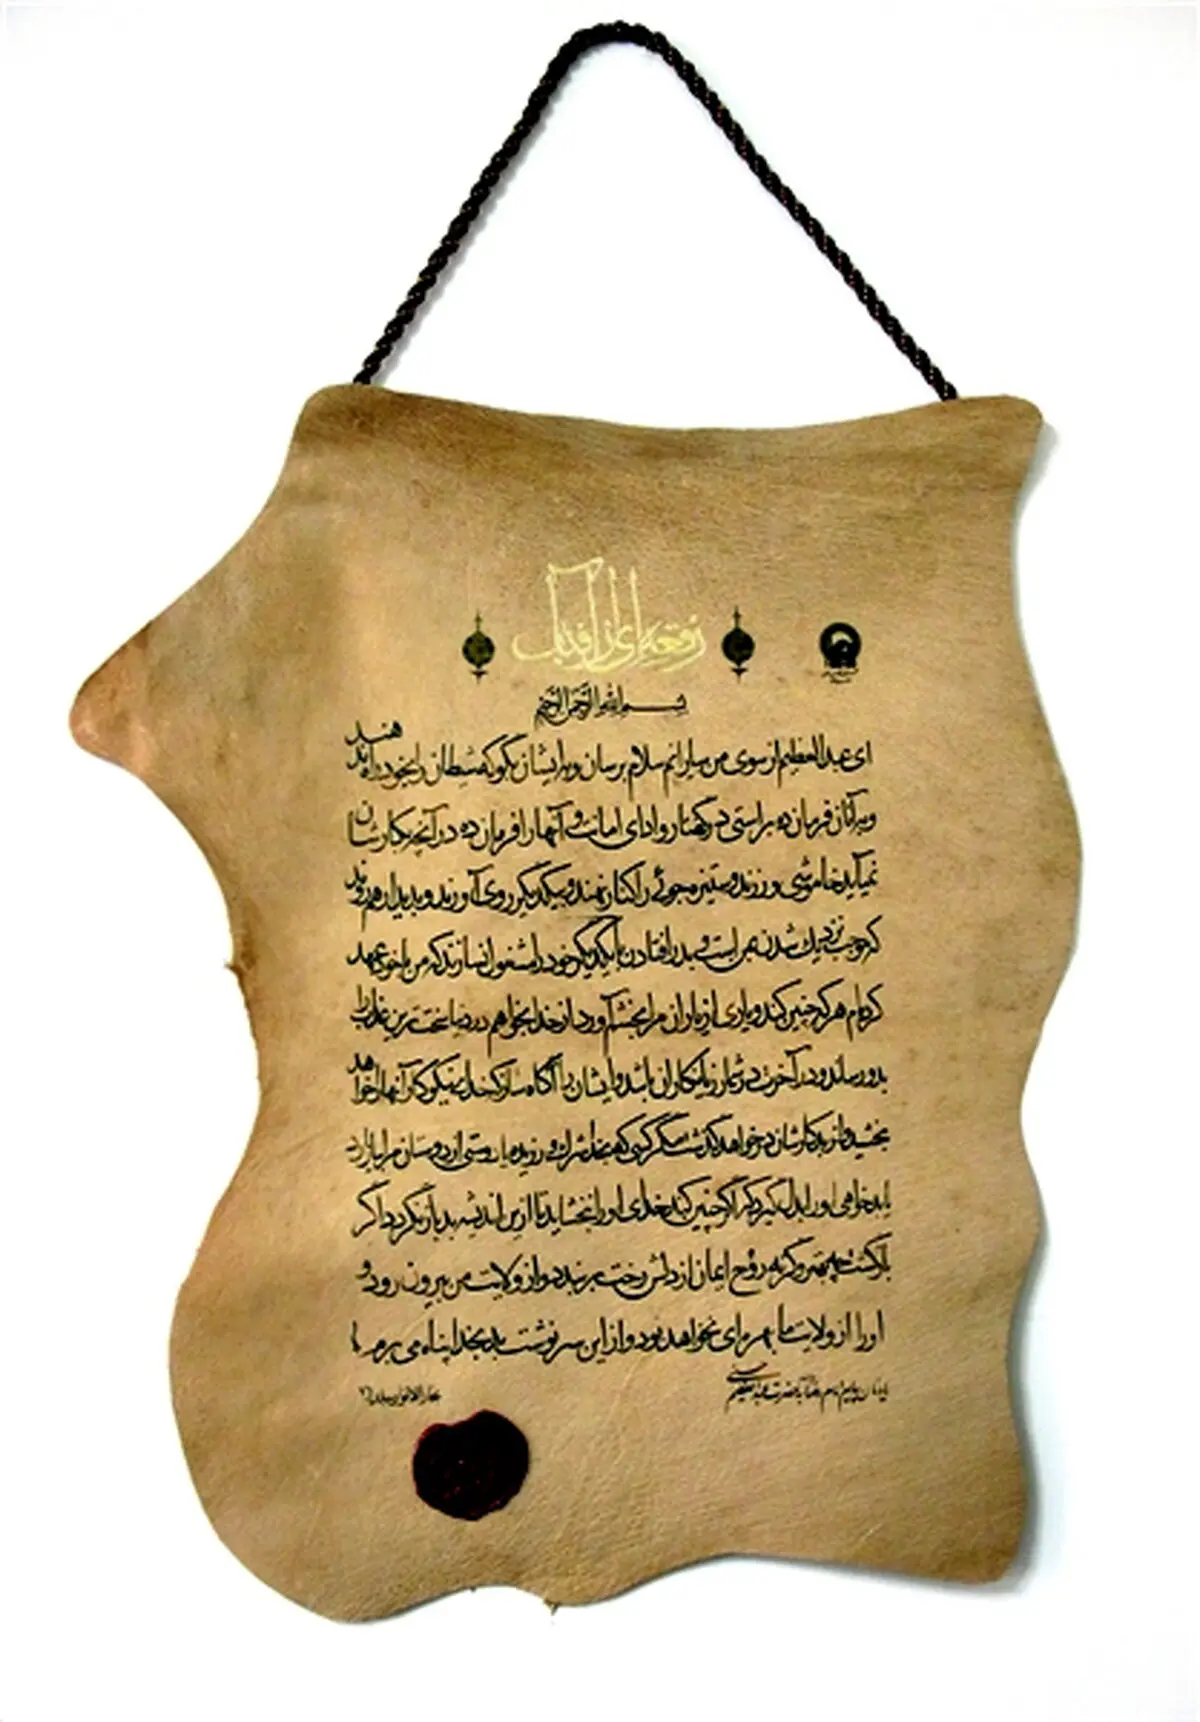 رقعه‌ای از آفتاب
بسم الله الرحمن الرحیم
ای عبدالعظیم از سوی من یارانم سلام برسان و به ایشان بگو که شیطان را بخود راه ندهند
و به آنان فرمان ده براستی در گفتار و ادای امانت و آنها را فرمان ده در آنچه بکارشان
نمیآید خاموشی ورزند و ستیزه‌جوئی را کنار نهند و بیکدیگر روی آورند و بدیدار هم روند
که موجب نزدیک شدن بمن است و بدر افتادن با یکدیگر خود را مشغول نسازند که من با خود عهد
کرده‌ام هر که چنین کند و یاری از یاران مرا بخشم آورد از خدا بخواهم در دنیا سخت‌ترین عذاب را
بدو رساند و در آخرت در شمار زیانکاران باشد و ایشان را آگاه ساز که خدای نیکوکار آنها را خواهد
بخشید و از بدکارشان در خواهد گذشت مگر کسی که بخدا شرک ورزیده یا دوستی از دوستان مرا بیازارد
یا بدخواهی او را بدل گیرد که اگر چنین کند خدای او را نبخشاید تا از این اندیشه بد باز گردد اگر
بازگشت چه بهتر وگرنه روح ایمان از دلش رخت بربندد و از ولایت من بیرون رود و
او را از ولایت ما بهره‌ای نخواهد بود و از این سرنوشت بد بخدا پناه می‌برم
پیام امام رضا به حضرت عبدالعظیم حسنی
بحارالانوار جلد